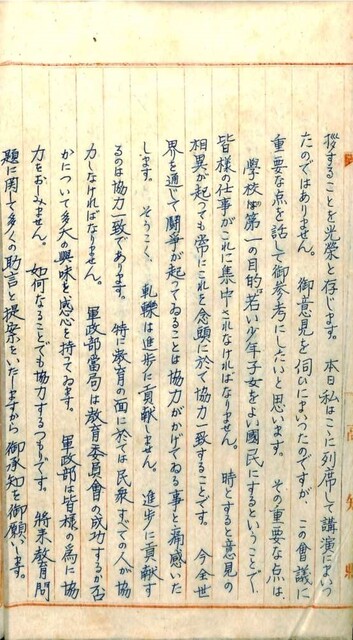 拶することを光榮と存じます。 本日私はここに列席して講演にまいつ
たのではありません。 御意見を伺ひにまいつたのですが、この會議に
重要な点を話して御参考にしたいと思います。 その重要な点は、
学校は第一の目的は若い少年子女をよい國民にするということで、
皆様の仕事がこれに集中されなければなりません。 時とすると意見の
相異が起っても常にこれを念頭に於て協力一致することです。 今全世
界を通じて闘争が起ってゐることは協力がかけてゐる事と痛感いた
します。 そうこく、軋轢は進歩に貢献しません。 進歩に貢献す
るのは協力一致であります。 特に教育の面に於ては民衆すべての人が協
力しなければなりません。 軍政部當局は教育委員會の成功するか否
かについて多大の興味と感心を持てゐます。 軍政部は皆様の為に協
力をおしみません。 如何なることでも協力するつもりです。 將来教育問
題に関して多くの助言と提案をいたしますから御承知を御願いします。
高知縣